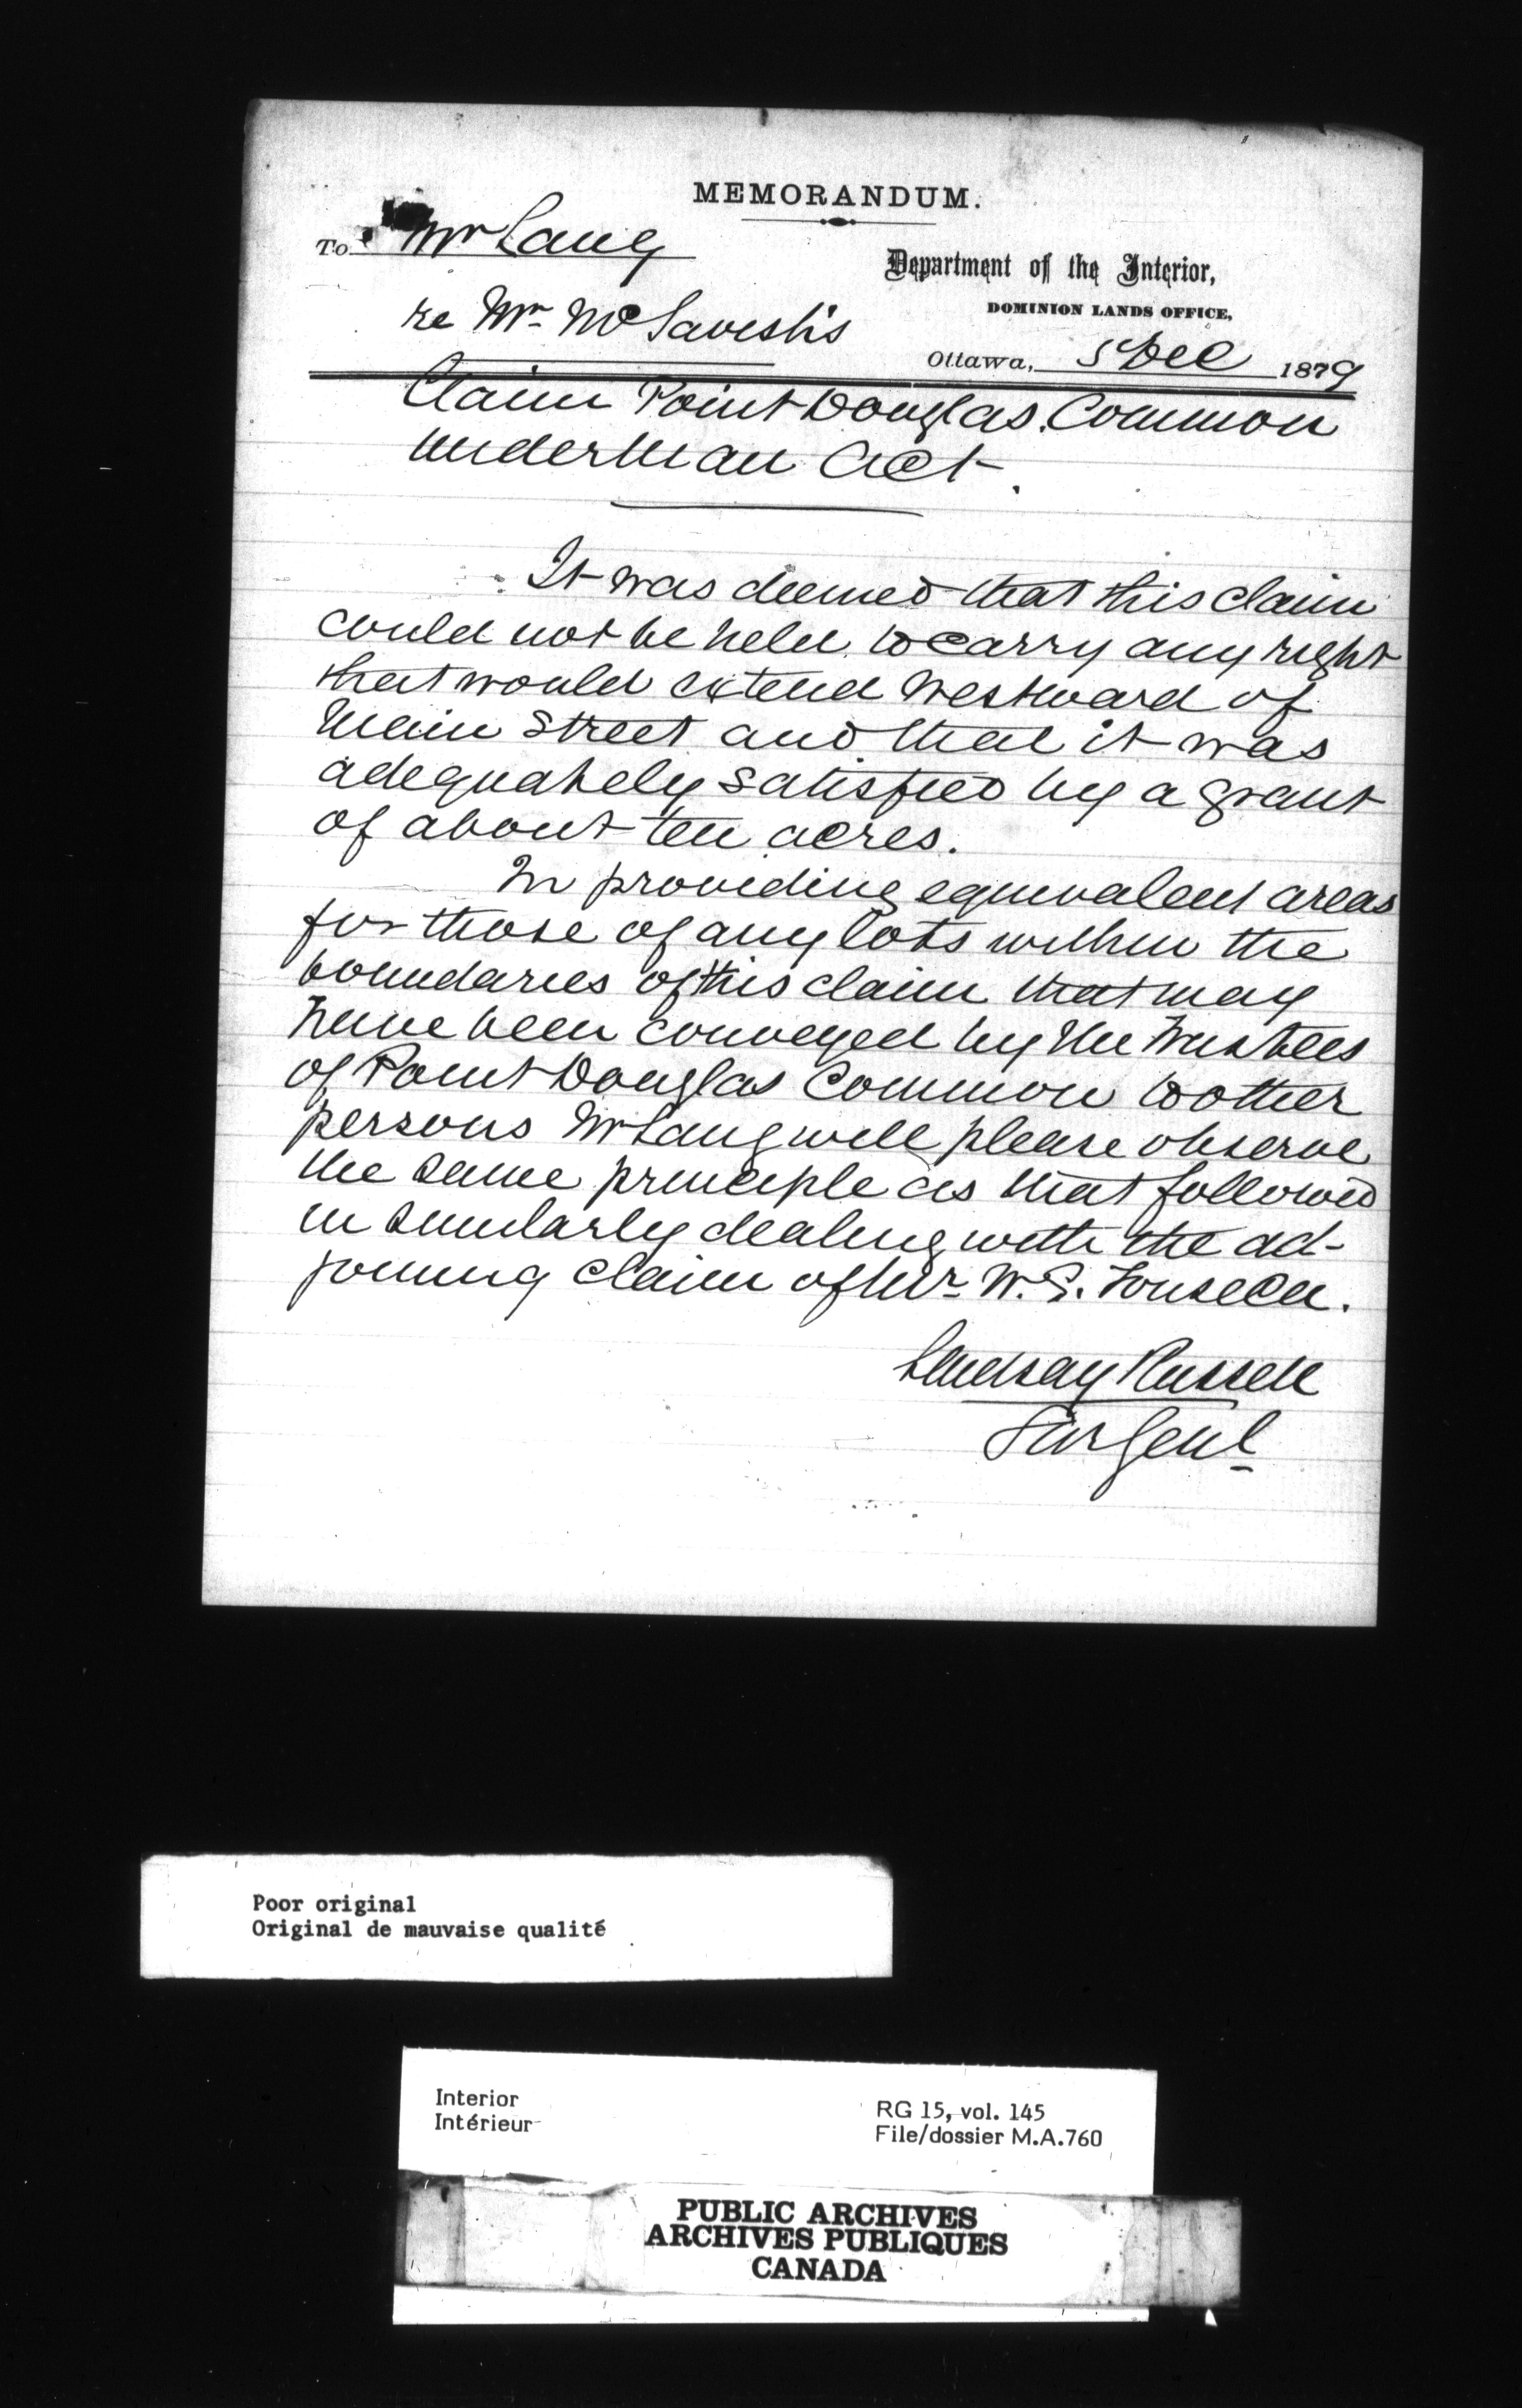 MEMORANDUM.
To Mr Lang
Department of the Interior,
DOMINION LANDS OFFICE,
re Mr McTavish's
Ottawa, 5 Dec 1879
Claim Point Douglas Common
under Man Act.
It was deemed that this claim
could not be held to carry any right
that would extend Westward of
Main Street and that it was
adequately satisfied by a grant
of about ten acres.
In providing equivalent areas
for those of any lots within the
boundaries of this claim that may
have been conveyed by the Trustees
of Point Douglas Common to other
persons Mr Lang will please observe
the same principle as that followed
in similarly dealing with the ad-
joining claim of Mr W. G. Fonseca.
Lindsay Russell
Sur Genl
Poor original
Original de mauvaise qualité
Interior
Intérieur
RG 15, vol. 145
File/dossier M.A.760
PUBLIC ARCHIVES
ARCHIVES PUBLIQUES
CANADA